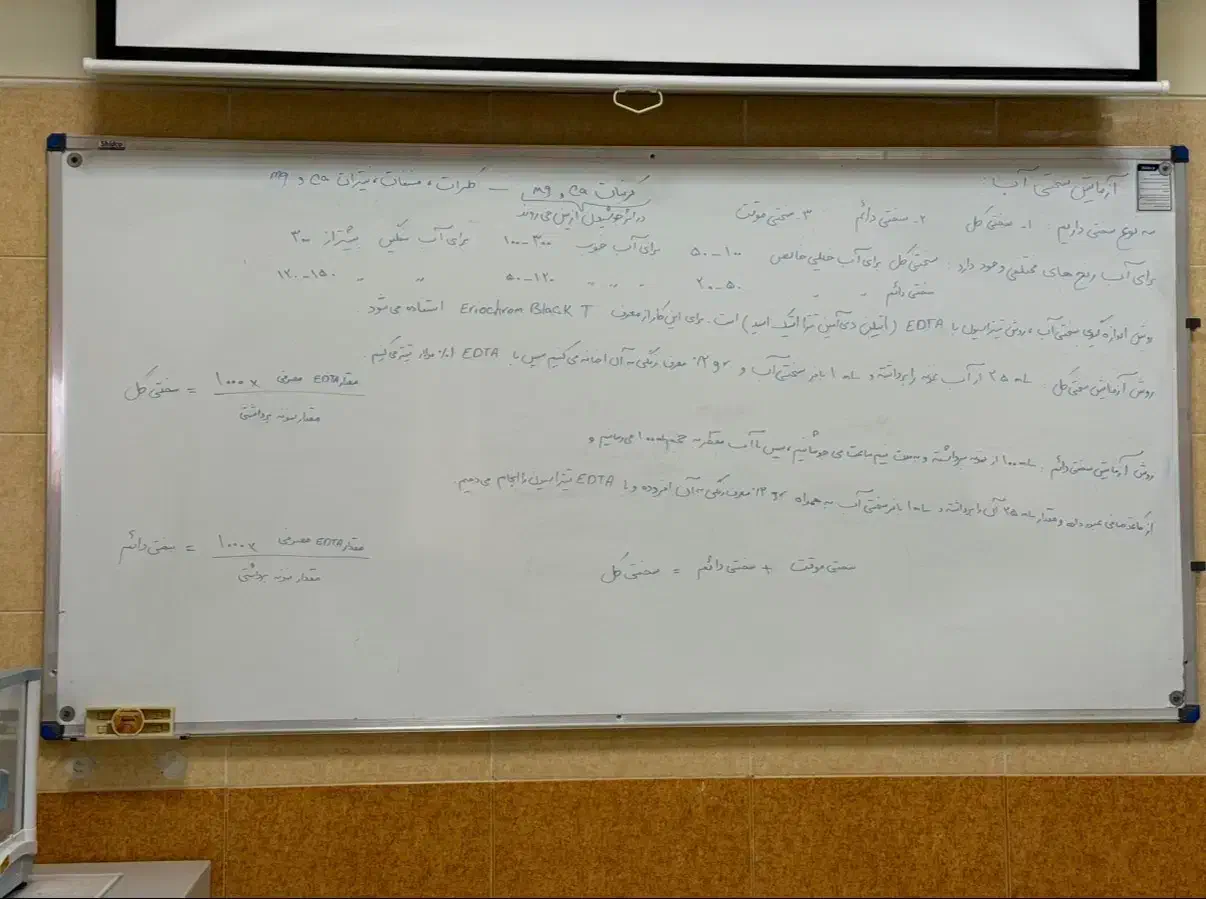 Shidco
آزمایش سختی آب:
کربنات Ca و Mg — کلرات، سولفات، نیترات Ca و Mg
در اثر جوشیدن از بین می‌روند
سه نوع سختی داریم: ۱- سختی کل ۲- سختی دائم ۳- سختی موقت
برای آب رنج های مختلفی وجود دارد: سختی کل برای آب خیلی خالص ۱۰۰-۵۰ برای آب خوب ۳۰۰-۱۰۰ برای آب سنگین بیشتر از ۳۰۰
سختی دائم " " ۵۰-۲۰ " " " ۱۲۰-۵۰ " " ۱۵۰-۱۲۰
روش اندازه گیری سختی آب، روش تیتراسیون با EDTA (اتیلن دی آمین تترا استیک اسید) است. برای این کار از معرف Eriochrom Black T استفاده می شود.
روش آزمایش سختی کل: ۲۵ mL از آب نمونه را برداشته و ۱ mL بافر سختی آب و ۲ gr معرف رنگی به آن اضافه می کنیم سپس با EDTA ۰.۰۱ مولار تیتر می کنیم.
سختی کل = مقدار EDTA مصرفی × ۱۰۰۰
مقدار نمونه برداشتی
روش آزمایش سختی دائم: ۱۰۰ mL از نمونه برداشته و به مدت نیم ساعت می جوشانیم، سپس با آب مقطر به حجم ۱۰۰ mL می رسانیم و
از کاغذ صافی عبور داده و مقدار ۲۵ mL آن را برداشته و ۱ mL بافر سختی آب به همراه ۲ gr معرف رنگی به آن افزوده و با EDTA تیتراسیون را انجام می دهیم.
سختی دائم = مقدار EDTA مصرفی × ۱۰۰۰
مقدار نمونه برداشتی
سختی کل = سختی دائم + سختی موقت